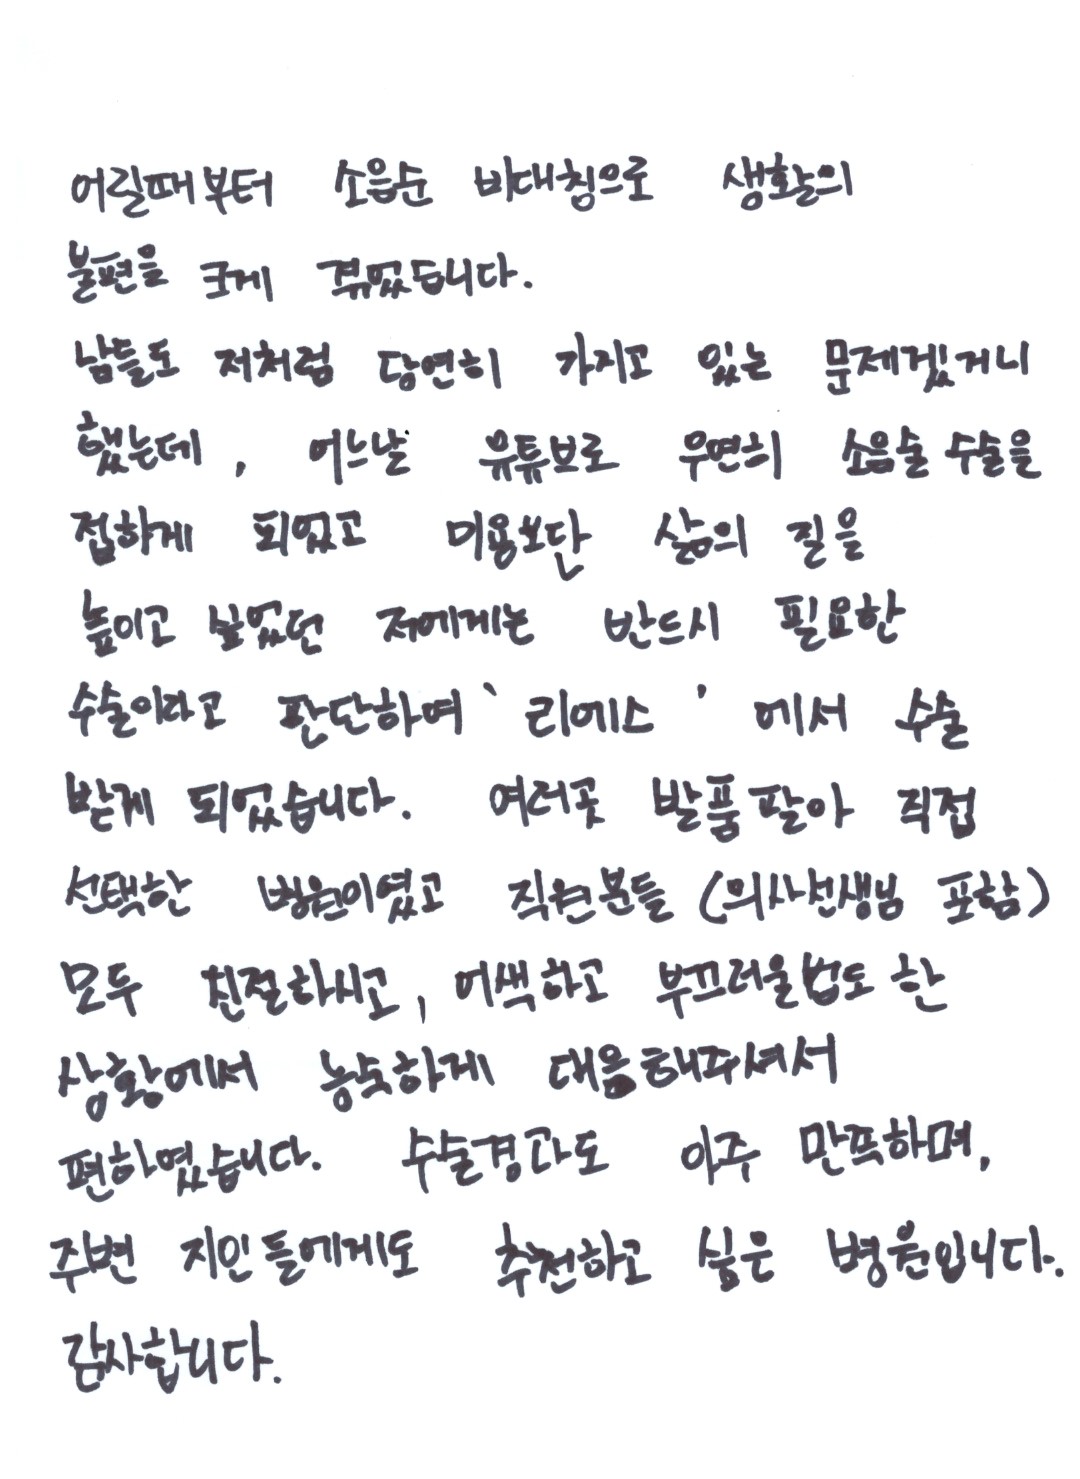 어릴때부터 소음순 비대칭으로 생활의
불편을 크게 겪었습니다.
남들도 저처럼 당연히 가지고 있는 문제겠거니
했는데, 어느날 유튜브로 우연희 소음술 수술을
접하게 되었고 미용보단 삶의 질을
높이고 싶었던 저에게는 반드시 필요한
수술이라고 판단하여 '리에스' 에서 수술
받게 되었습니다. 여러곳 발품팔아 직접
선택한 병원이였고 직원분들 (의사선생님 포함)
모두 친절하시고, 어색하고 부끄러울법도 한
상황에서 능숙하게 대응해주셔서
편하였습니다. 수술경과도 아주 만족하며,
주변 지인들에게도 추천하고 싶은 병원입니다.
감사합니다.